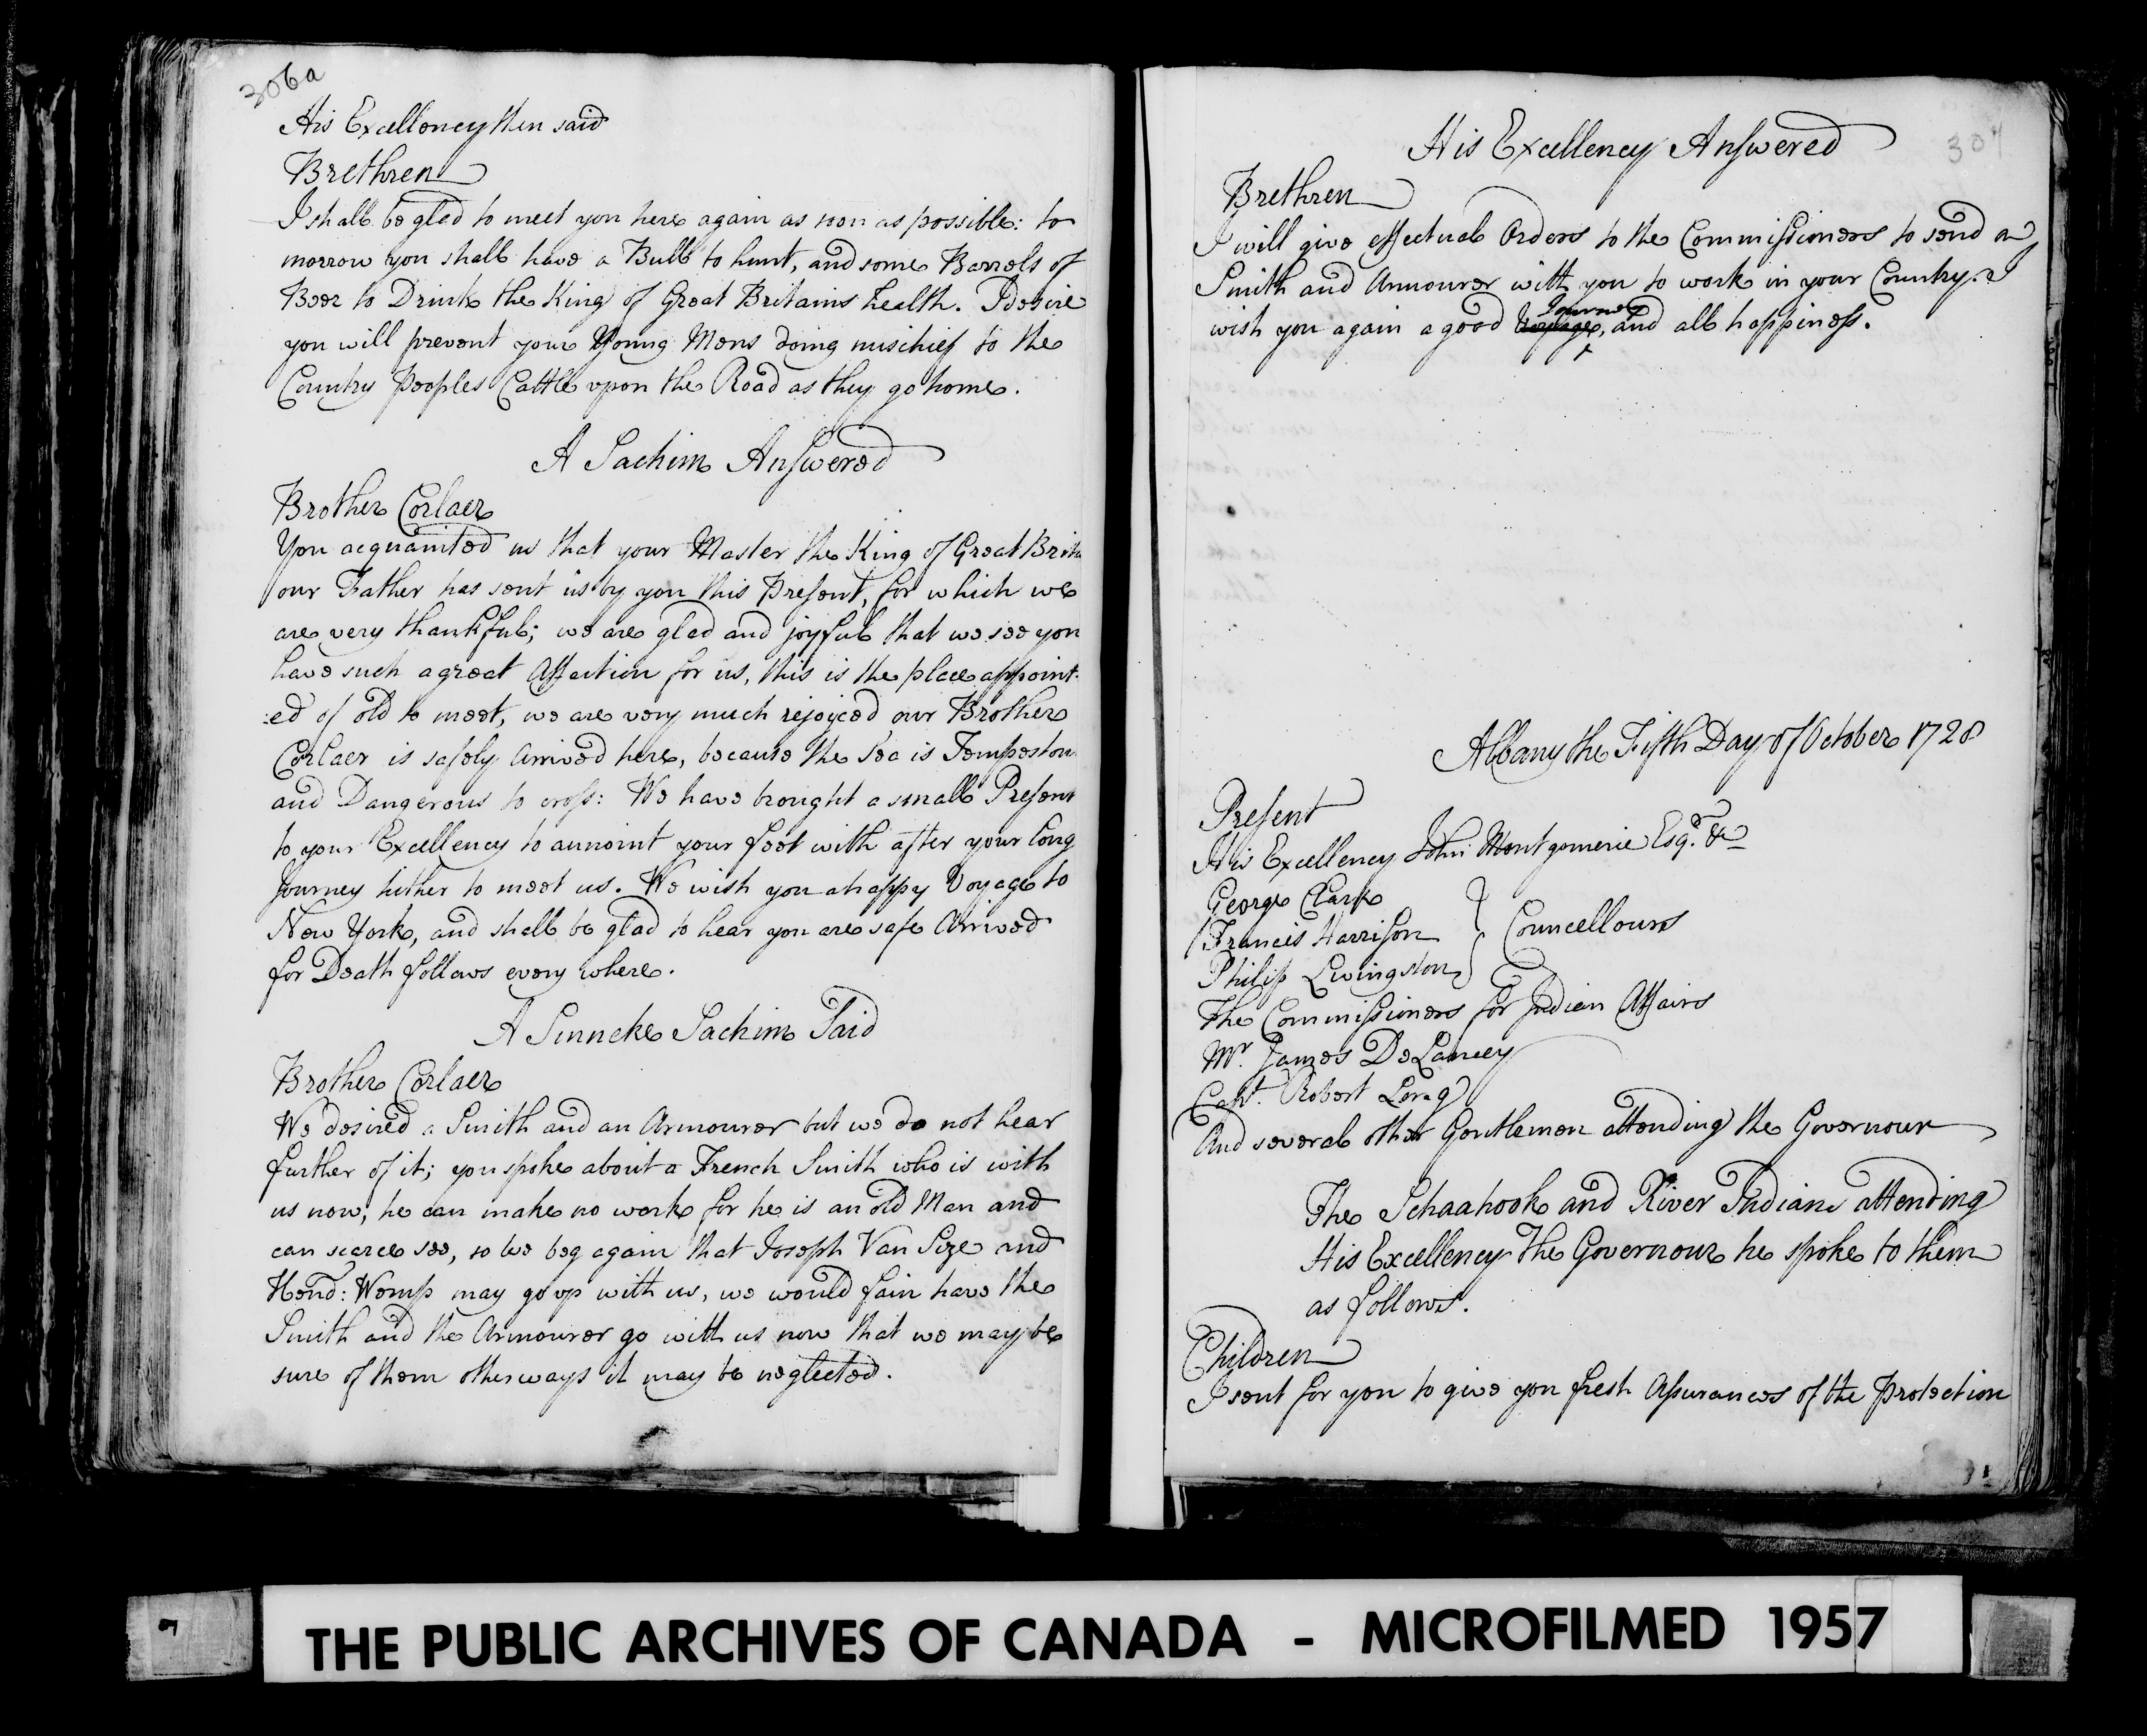 306a
His Excellency then said
Brethren
I shall be glad to meet you here again as soon as possible: to
morrow you shall have a Bull to hunt, and some Barrels of
Beer to Drink the King of Great Britains health. I desire
you will prevent your Young Mens doing mischief to the
Country Peoples Cattle upon the Road as they go home.
A Sachim Answered
Brother Corlaer
You acquainted us that your Master the King of Great Brita
our Father has sent us by you this Present, for which we
are very thankfull; we are glad and joyfull that we see you
have such a great Affection for us, this is the place appoint-
:ed of old to meet, we are very much rejoyced our Brother
Corlaer is safely Arrived here, because the Sea is Tempestou
and Dangerous to cross: We have brought a small Present
to your Excellency to annoint your feet with after your long
Journey hither to meet us. We wish you a happy Voyage to
New York, and shall be glad to hear you are safe Arrived
for Death follows every where.
A Sinneke Sachim Said
Brother Corlaer
We desired a Smith and an Armourer but we do not hear
further of it; you spoke about a French Smith who is with
us now; he can make no work for he is an old Man and
can scarce see, so we beg again that Joseph Van Size and
Hend: Wemp may go up with us, we would fain have the
Smith and the Armourer go with us now that we may be
sure of them otherways it may be neglected.
307
His Excellency Answered
Brethren
I will give effectual Orders to the Commissioners to send a
Smith and Armourer with you to work in your Country. I
Journey
wish you again a good Voyage, and all happiness.
Albany the Fifth Day of October 1728
Present
His Excellency John Montgomerie Esqr. &c
George Clark
Francis Harrison } Councellours
Philip Livingston
The Commissioners for Indian Affairs
Mr. James DeLancey
Capt. Robert
And several other Gentlemen attending the Governour
The Schaahook and River Indians attending
His Excellency The Governour he spoke to them
as follows.
Children
I sent for you to give you fresh Assurances of the Protection
THE PUBLIC ARCHIVES OF CANADA - MICROFILMED 1957